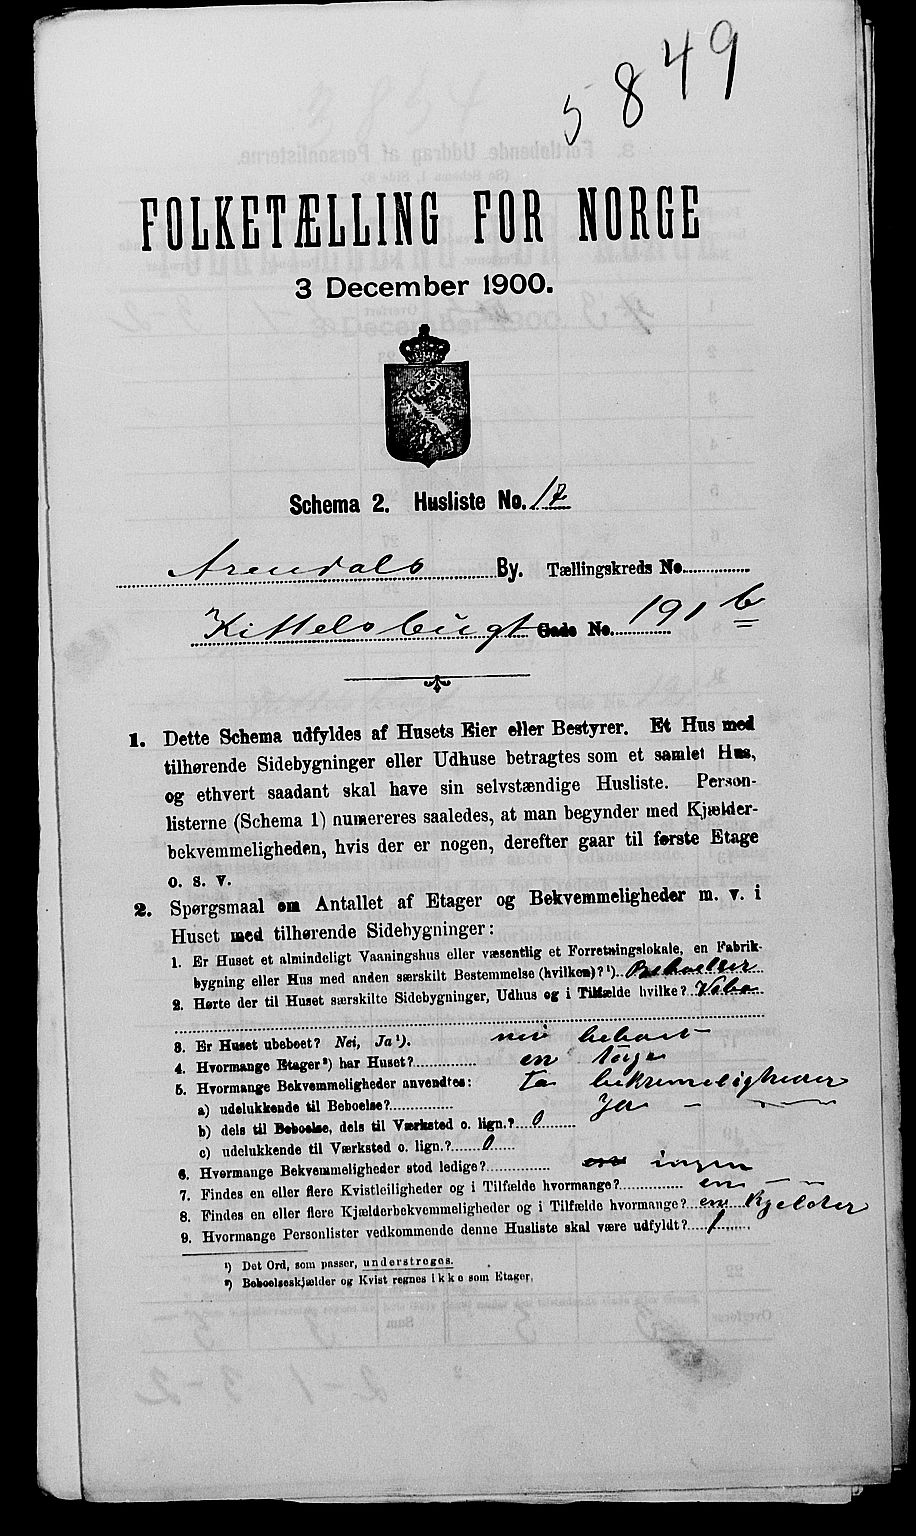 5849
FOLKETÆLLING FOR NORGE
3 December 1900.
Schema 2. Husliste No. 17
Arendals By. Tællingskreds No.
Kittelsbugt Gade No. 191 b
1. Dette Schema udfyldes af Husets Eier eller Bestyrer. Et Hus med
tilhørende Sidebygninger eller Udhuse betragtes som et samlet Hus,
og ethvert saadant skal have sin selvstændige Husliste. Person-
listerne (Schema 1) numereres saaledes, at man begynder med Kjælder-
bekvemmeligheden, hvis der er nogen, derefter gaar til første Etage
o. s. v.
2. Spørgsmaal om Antallet af Etager og Bekvemmeligheder m. v. i
Huset med tilhørende Sidebygninger:
1. Er Huset et almindeligt Vaaningshus eller væsentlig et Forretningslokale, en Fabrik-
bygning eller Hus med anden særskilt Bestemmelse (hvilken)? ¹)
2. Hørte der til Huset særskilte Sidebygninger, Udhus og i Tilfælde hvilke?
3. Er Huset ubeboet? Nei, Ja ¹). nei beboet
4. Hvormange Etager ²) har Huset? en
5. Hvormange Bekvemmeligheder anvendtes: To bekvemeligheder
a) udelukkende til Beboelse?
b) dels til Beboelse, dels til Værksted o. lign.? 0
c) udelukkende til Værksted o. lign.? 0
6. Hvormange Bekvemmeligheder stod ledige? ingen
7. Findes en eller flere Kvistleiligheder og i Tilfælde hvormange? en
8. Findes en eller flere Kjælderbekvemmeligheder og i Tilfælde hvormange? en Kjelder
9. Hvormange Personlister vedkommende denne Husliste skal være udfyldt? 1
¹) Det Ord, som passer, understreges.
²) Beboelseskjælder og Kvist regnes ikke som Etager.